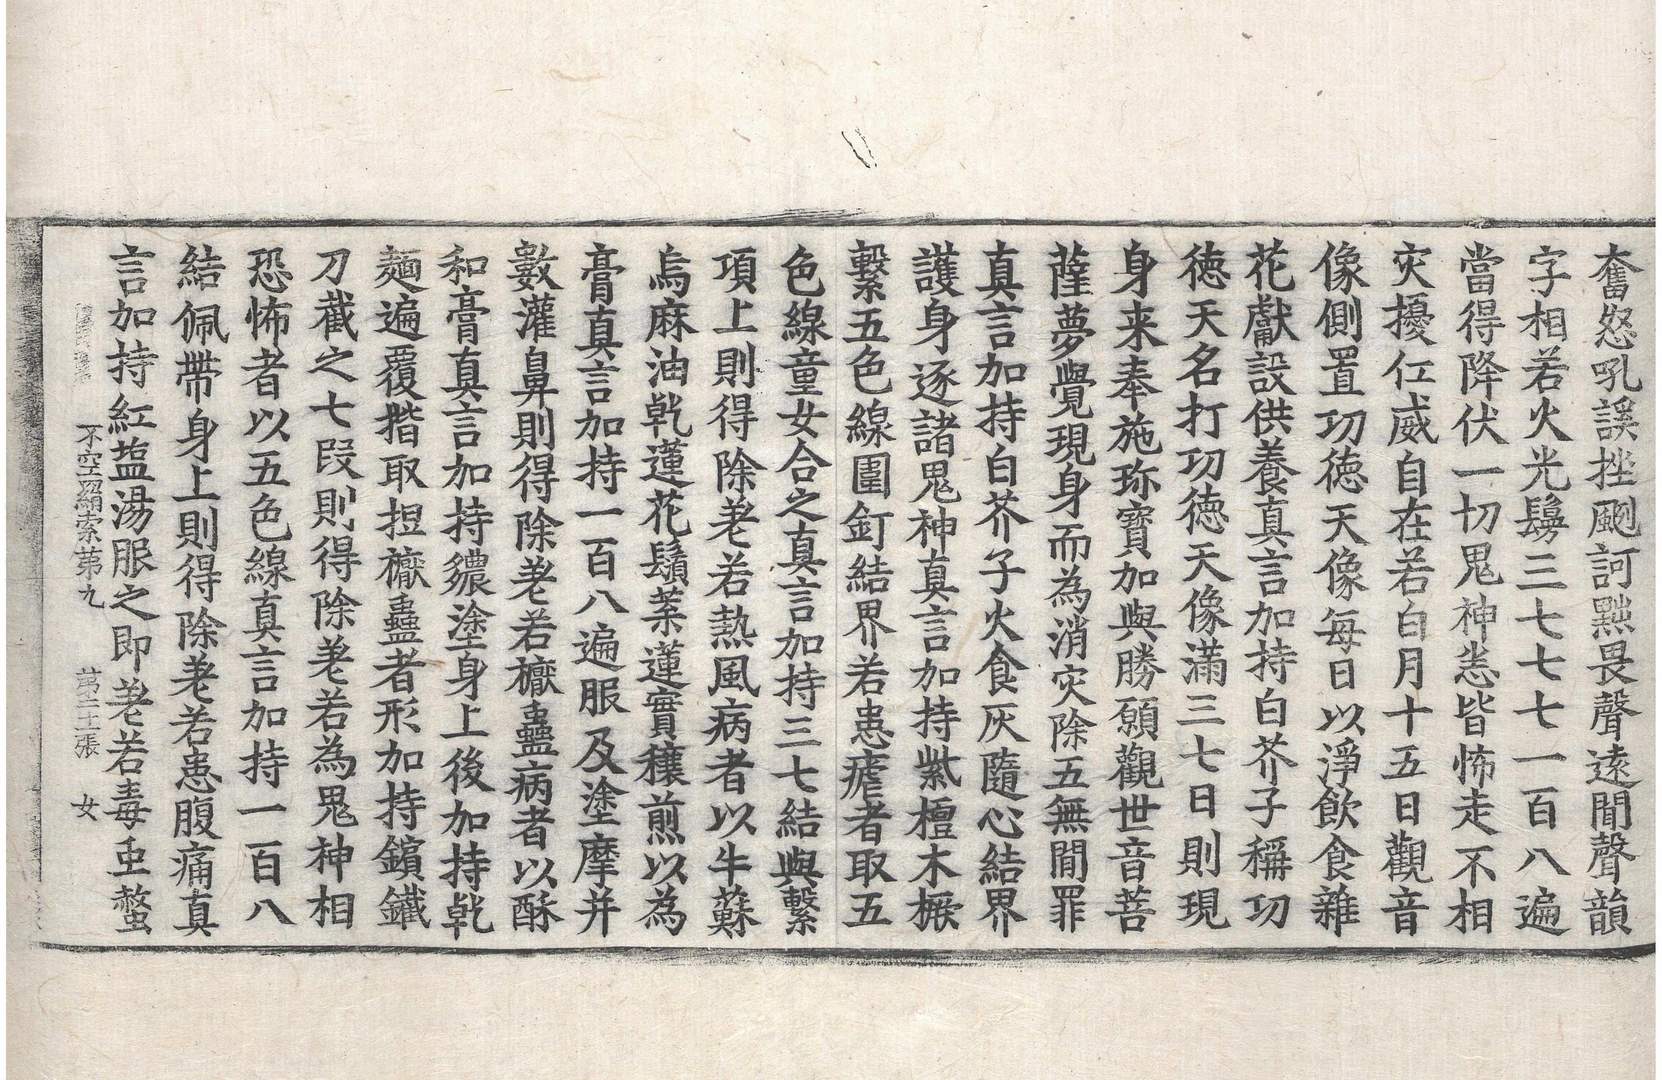 奮怒吼謨挫颲訶㸃畏聲遠聞聲韻
字相若火光鬘三七七七一百八遍
當得降伏一切鬼神恙皆怖走不相
灾擾仁威自在若白月十五日觀音
像側置功徳天像每日以淨飲食雜
花獻設供養真言加持白芥子稱功
徳天名打功徳天像滿三七日則現
身来奉施珎寶加與勝願觀世音菩
薩夢覺現身而為消灾除五無閒罪
真言加持白芥子火食灰隨心結界
護身逐諸鬼神真言加持紫檀木橛
繫五色線圍釘結界若患瘧者取五
色線童女合之真言加持三七結與繫
項上則得除差若熱風病者以牛蘇
烏麻油乹蓮花鬚葉蓮實穰煎以為
膏真言加持一百八遍服及塗摩并
數灌鼻則得除差若蠱病者以酥
和膏真言加持醲塗身上後加持乹
麵遍覆揩取担蠱者形加持鑌鐵
刀截之七段則得除差若為鬼神相
恐怖者以五色線真言加持一百八
結佩帶身上則得除差若患腹痛真
言加持紅塩湯服之即差若毒虫螫
不空羂索第九 張 女